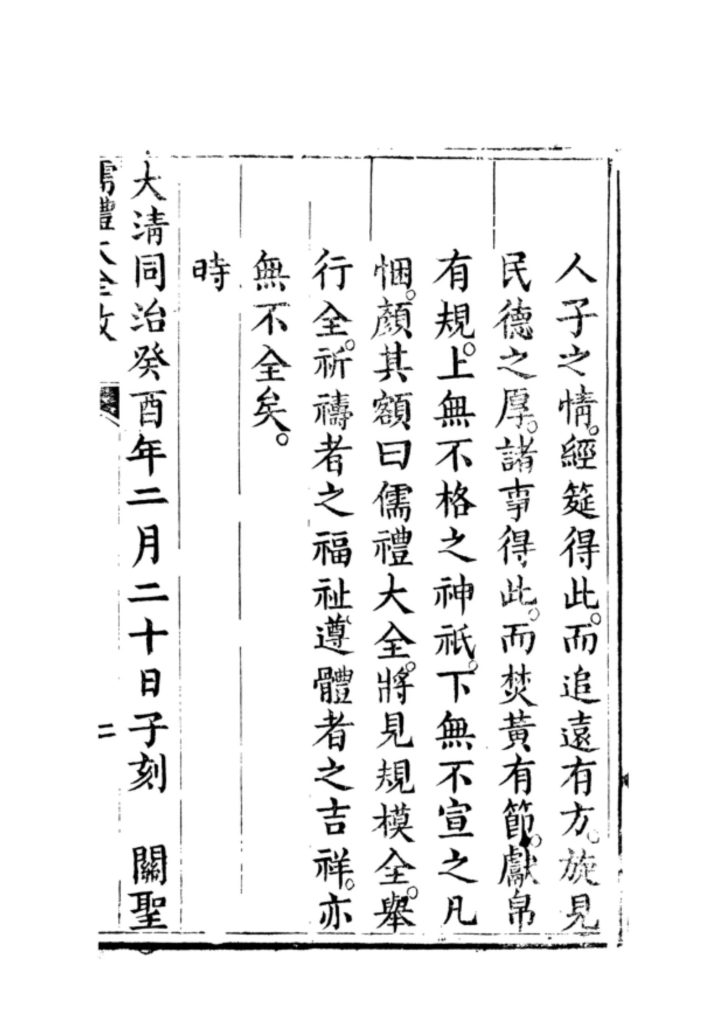 人子之情。經筵得此。而追遠有方。旋見
民德之厚。諸事得此。而焚黃有節。獻帛
有規。上無不格之神祇。下無不宣之凡
悃。顏其額曰儒禮大全。將見規模全。舉
行全。祈禱者之福祉。遵體者之吉祥。亦
無不全矣。
時
大清同治癸酉年二月二十日子刻 關聖
儒禮大全敘
二